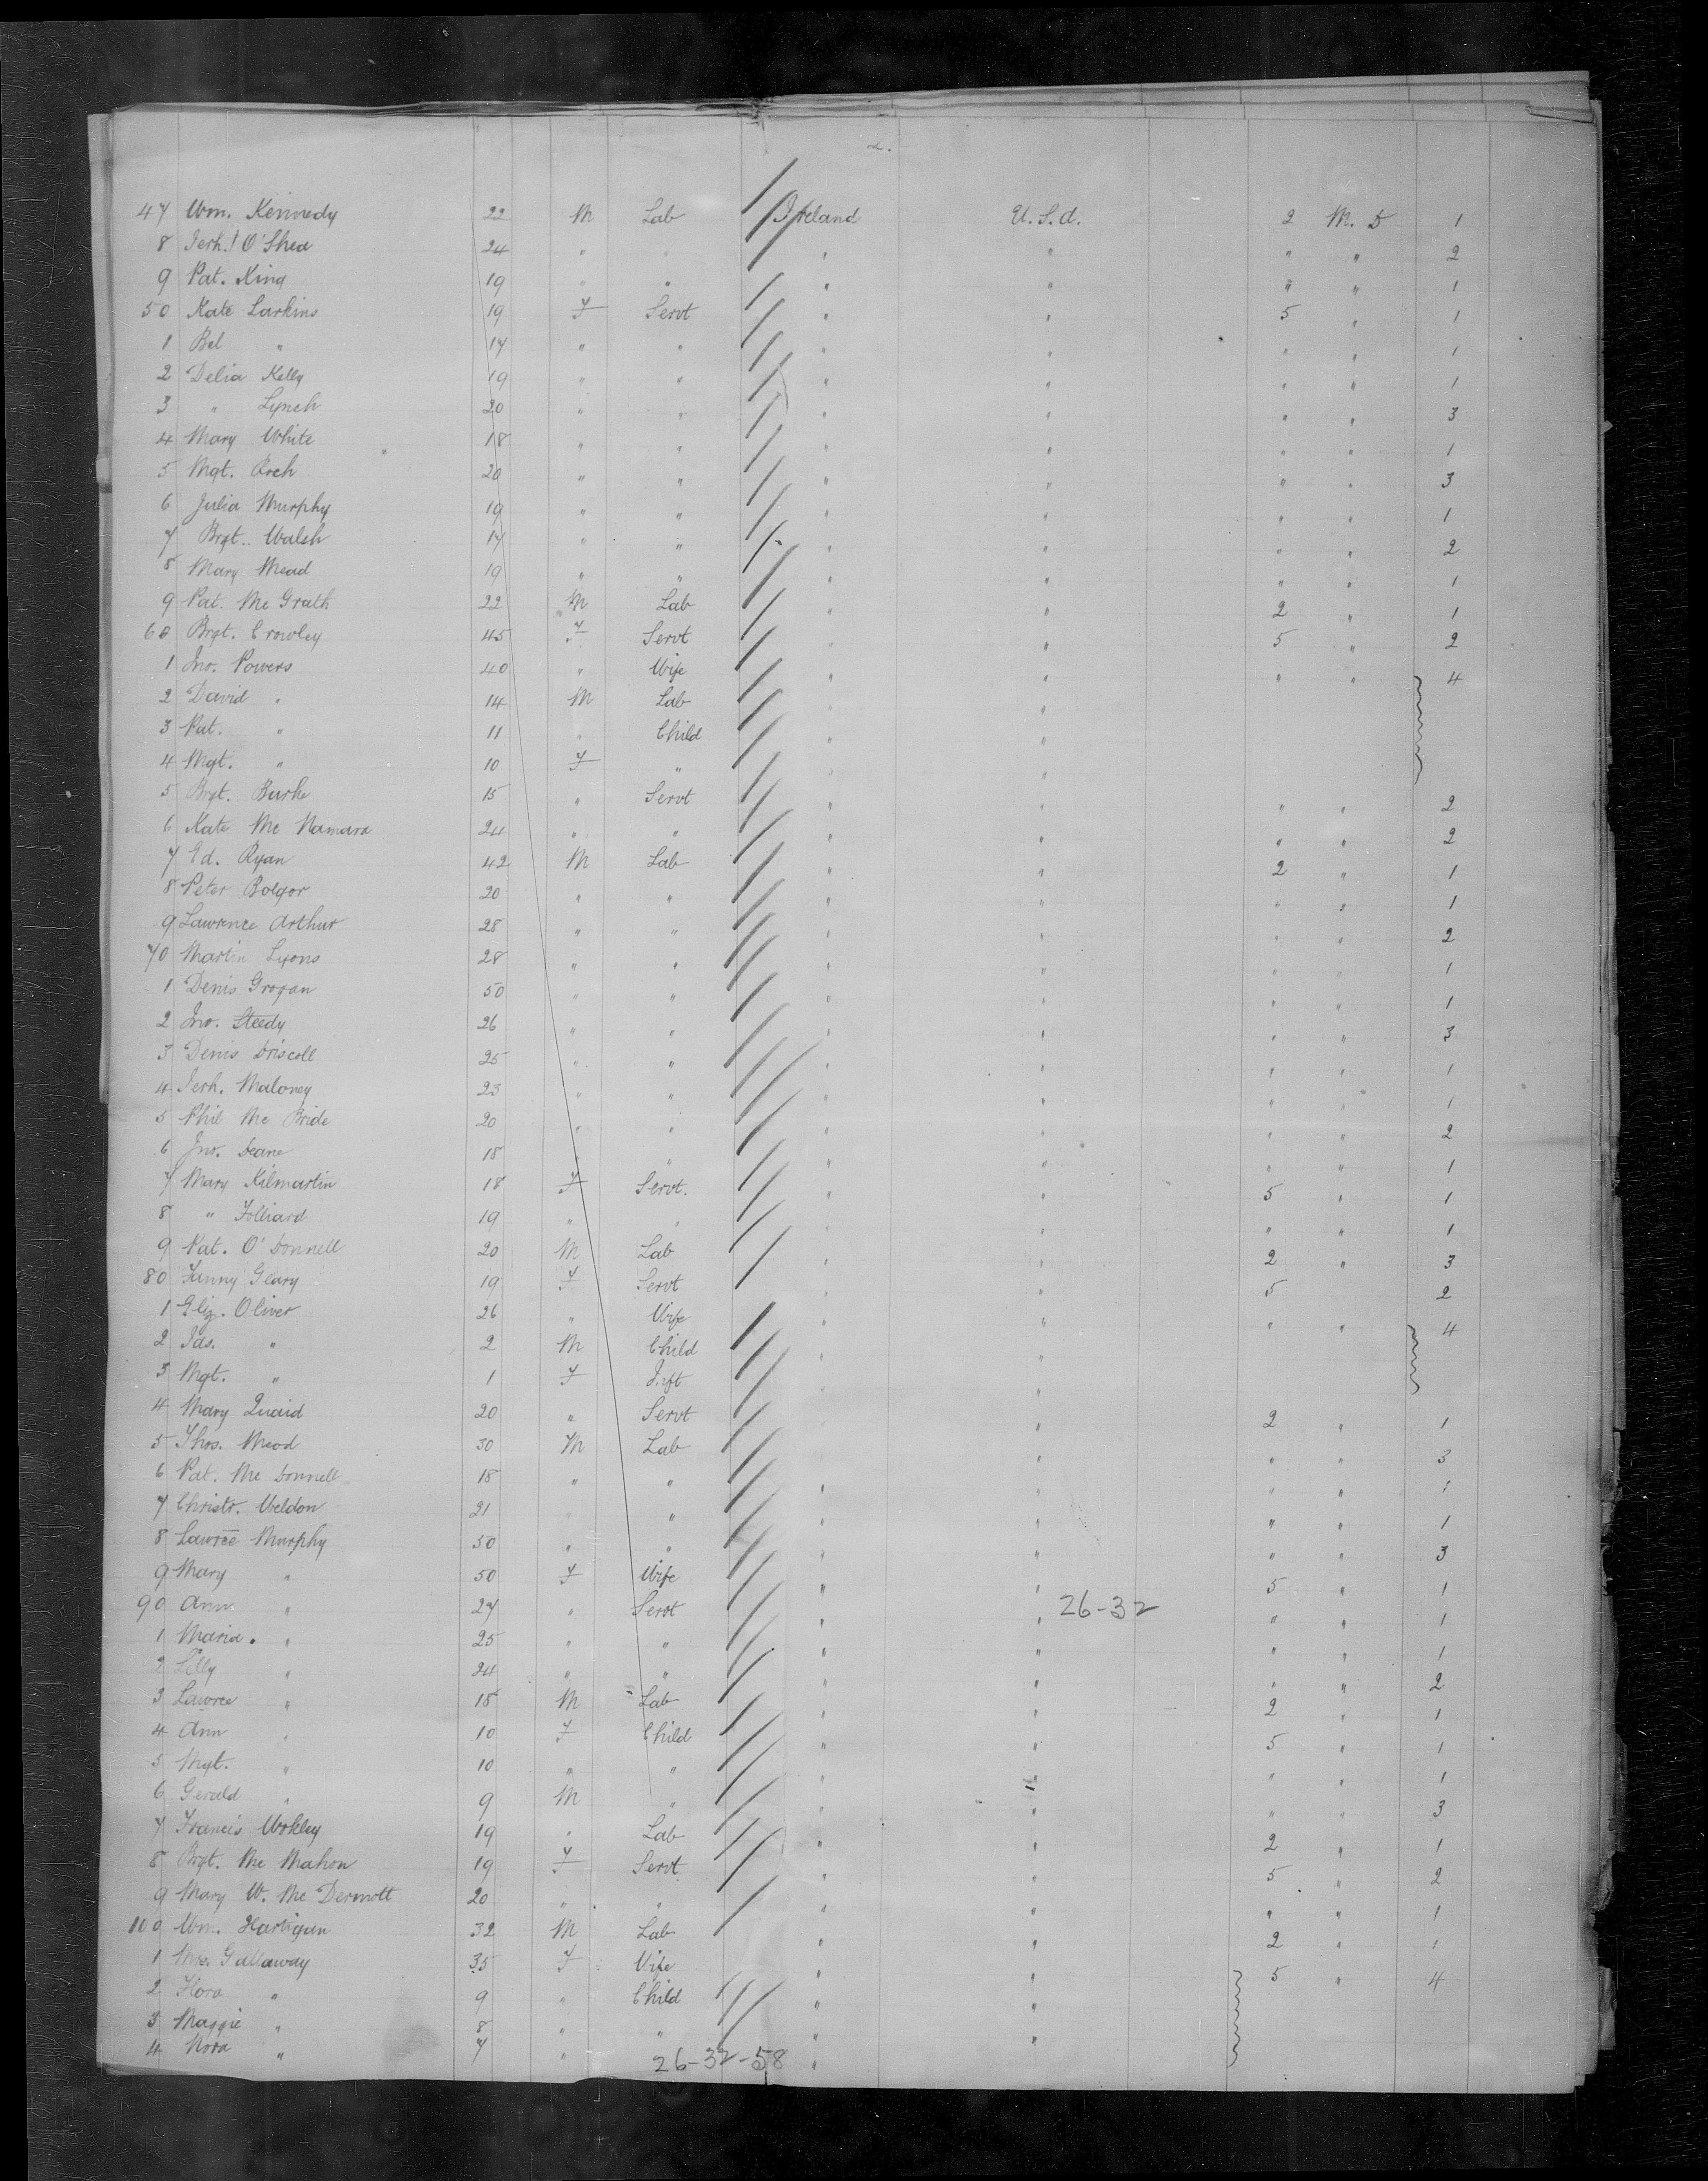 2.
47 Wm. Kennedy 22 M Lab Ireland U.S.A. 2 M. D 1
8 Jerh. O'Shea 24 " " " " " " 2
9 Pat. King 19 " " " " " " 1
50 Kate Larkins 19 F Servt " " 5 " 1
1 Bel " 17 " " " " " " 1
2 Delia Kelly 19 " " " " " " 1
3 " Lynch 20 " " " " " " 3
4 Mary White 18 " " " " " " 1
5 Mgt. Roch 20 " " " " " " 3
6 Julia Murphy 19 " " " " " " 1
7 Brgt. Walsh 17 " " " " " " 2
8 Mary Mead 19 " " " " " " 1
9 Pat. Mc Grath 22 M Lab " " 2 " 1
60 Brgt. Crowley 45 F Servt " " 5 " 2
1 Jno. Powers 40 " Wife " " " " 4
2 David " 14 M Lab " "
3 Pat. " 11 " Child " "
4 Mgt. " 10 F " " "
5 Brgt. Burke 15 " Servt " " " " 2
6 Kate Mc Namara 24 " " " " " " 2
7 Ed. Ryan 42 M Lab " " 2 " 1
8 Peter Bolgor 20 " " " " " " 1
9 Lawrence Arthur 28 " " " " " " 2
70 Martin Lyons 28 " " " " " " 1
1 Denis Grogan 50 " " " " " " 1
2 Jno. Steedy 26 " " " " " " 3
3 Denis Driscoll 25 " " " " " " 1
4 Jerh. Maloney 23 " " " " " " 1
5 Phil Mc Bride 20 " " " " " " 2
6 Jno. Deane 18 " " " " " " 1
7 Mary Kilmartin 18 F Servt. " " 5 " 1
8 " Folliard 19 " " " " " " 1
9 Pat. O'Donnell 20 M Lab " " 2 " 3
80 Fanny Geary 19 F Servt " " 5 2
1 Eliz. Oliver 26 " Wife " " " " 4
2 Jas. " 2 M Child " "
3 Mgt. " 1 F Inft " "
4 Mary Quaid 20 " Servt " 2 " 1
5 Thos. Mead 30 M Lab " " " 3
6 Pat. Mc Donnell 18 " " " " " " 1
7 Christr. Weldon 21 " " " " " " 1
8 Lawrce Murphy 50 " " " " " " 3
9 Mary " 50 F Wife " " 5 " 1
90 Ann " 27 " Servt " " 26-32 " " 1
1 Maria. " 25 " " " " " " 1
2 Lilly " 24 " " " " " " 2
3 Lawrce " 18 M Lab " " 2 " 1
4 Ann " 10 F Child " " 5 " 1
5 Mgt. " 10 " " " " " " 1
6 Gerald " 9 M " " " " " 3
7 Francis Wokley 19 " Lab " " 2 " 1
8 Brgt. Mc Mahon 19 F Servt " " 5 " 2
9 Mary W. Mc Dermott 20 " " " " " " 1
100 Wm. Hartigan 32 M Lab " " 2 " 1
1 Mrs. Gallaway 35 F Wife " " 5 " 4
2 Flora " 9 " Child " "
3 Maggie " 8 " " " "
4 Nora " 7 " "
26-32-58